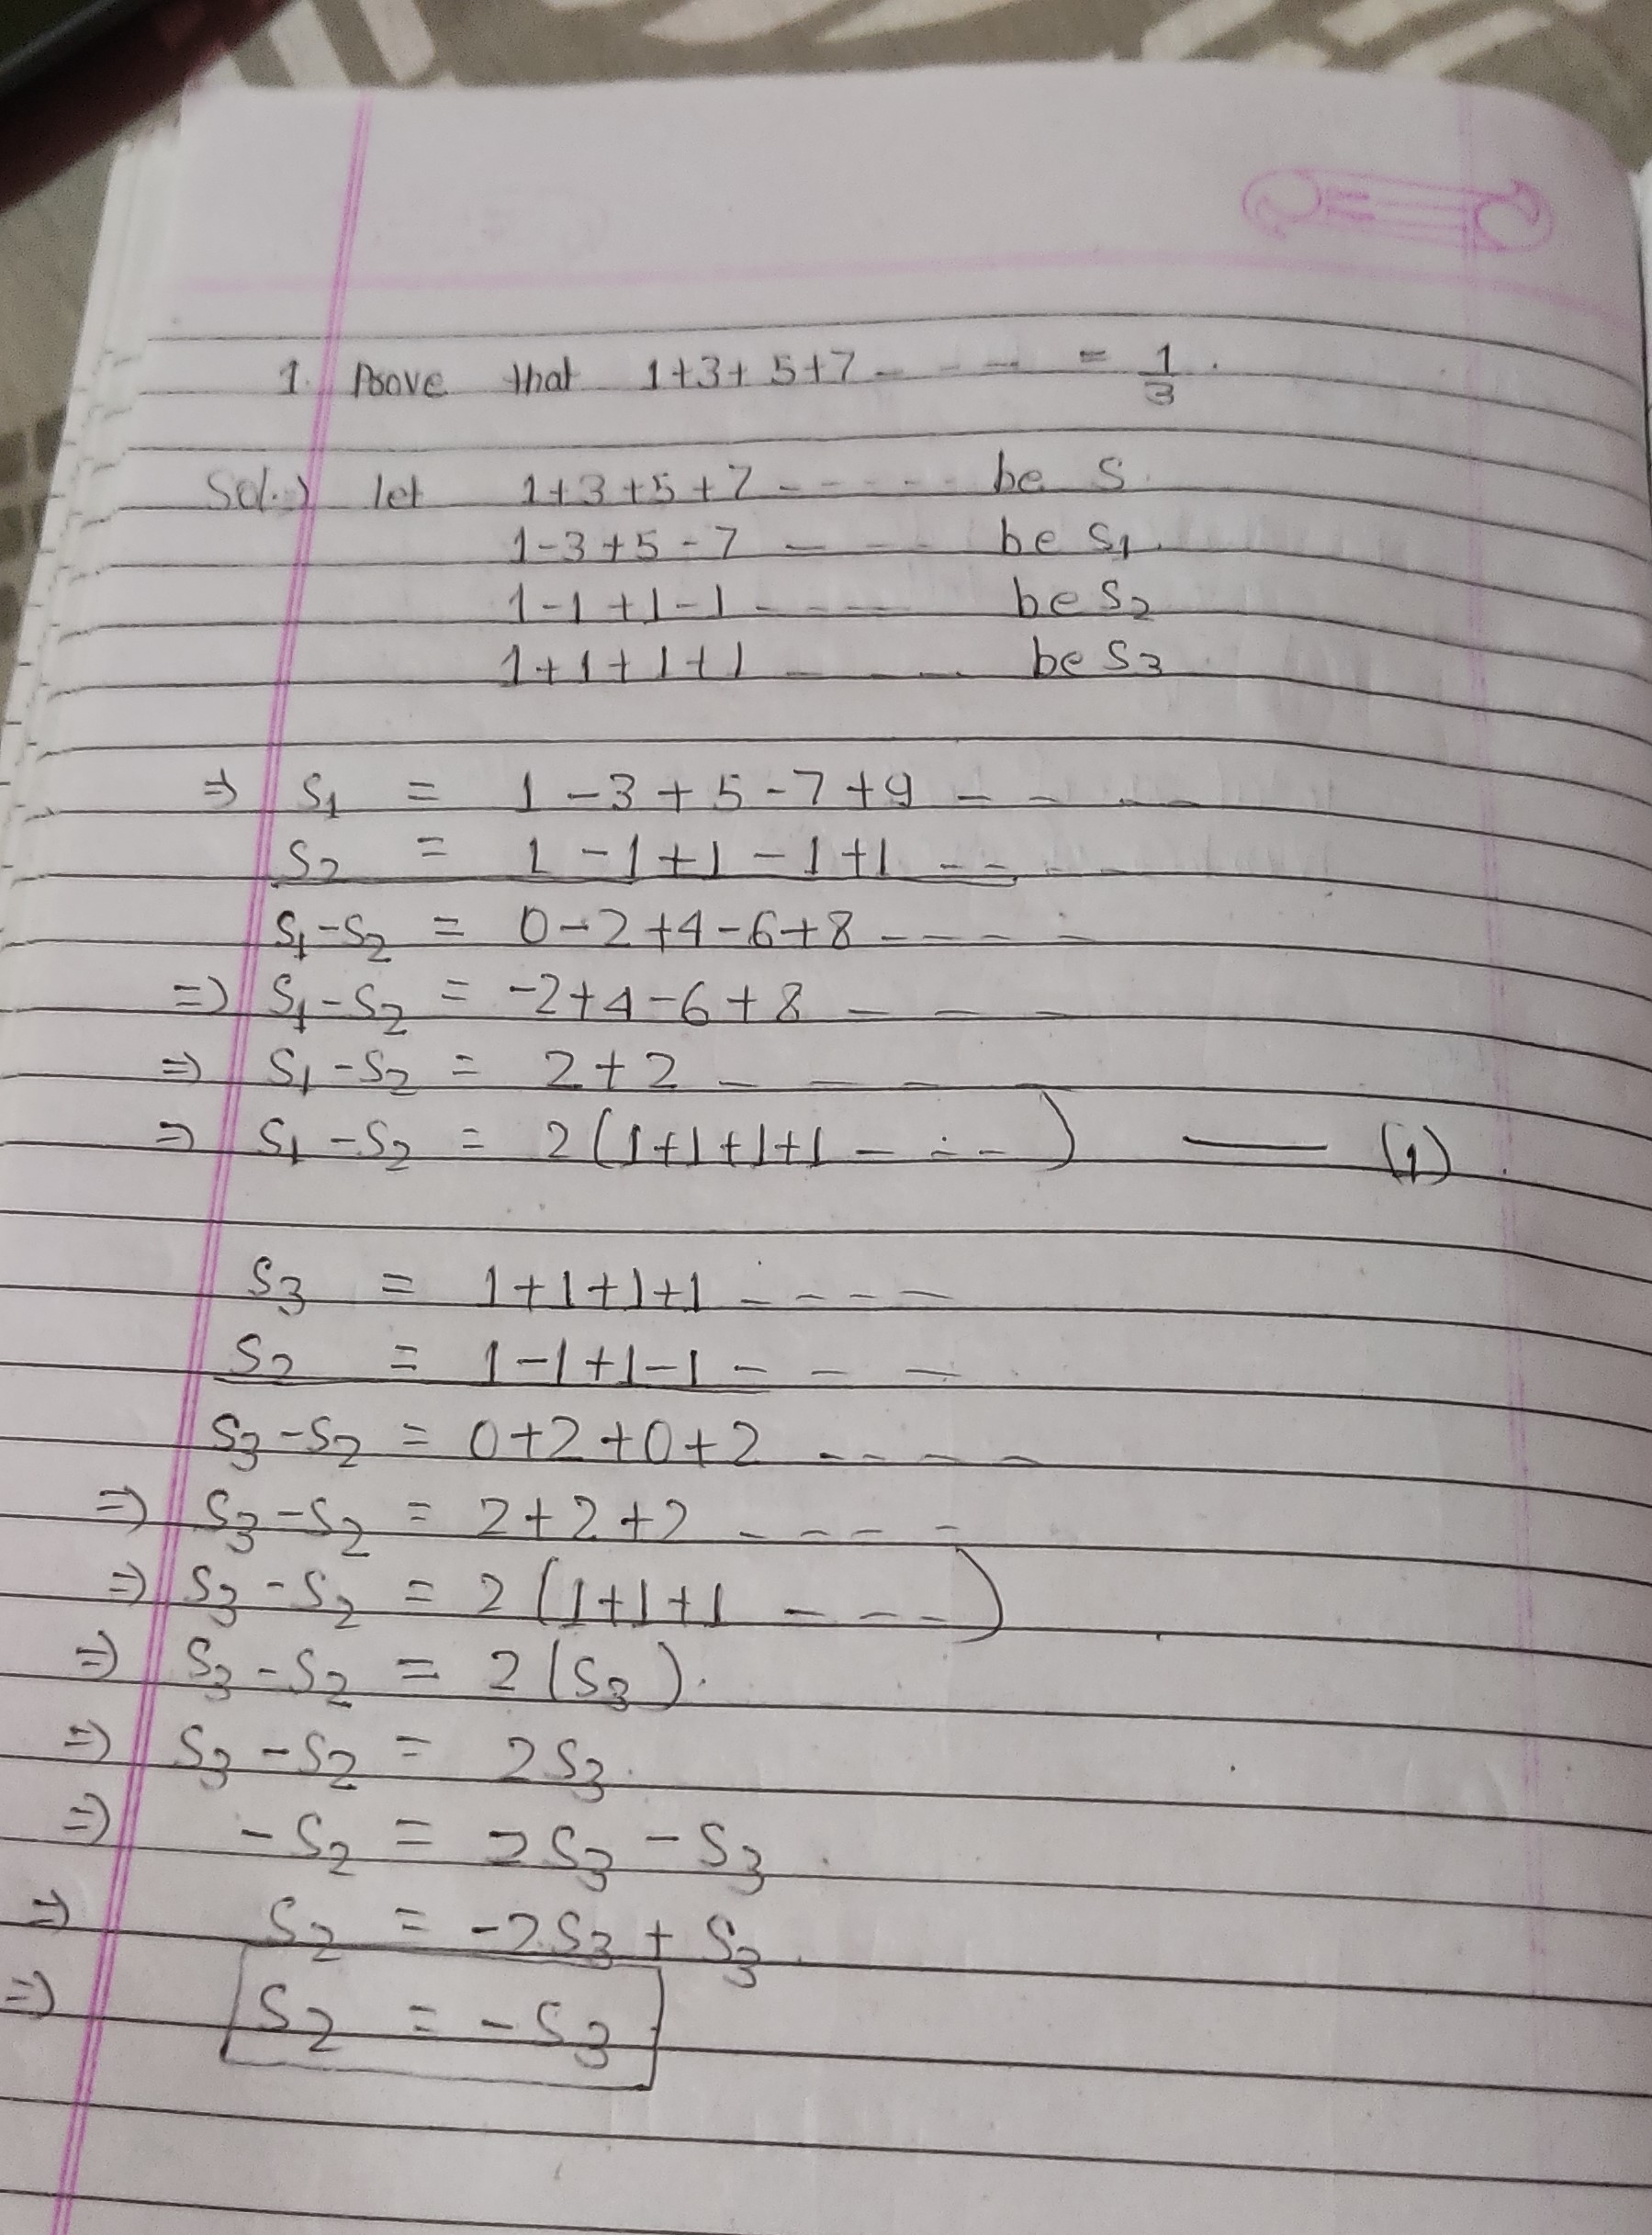 1. Prove that 1+3+5+7 - - - - = 1/3 .
Sol.) let 1+3+5+7 - - - - - be S.
1-3+5-7 - - - be S1.
1-1+1-1 - - - be S2
1+1+1+1 - - - be S3
=> S1 = 1-3+5-7+9 - - - -
S2 = 1-1+1-1+1 - - - -
S1-S2 = 0-2+4-6+8 - - - -
=> S1-S2 = -2+4-6+8 - - -
=> S1-S2 = 2+2 - - -
=> S1-S2 = 2(1+1+1+1 - - - ) — (1)
S3 = 1+1+1+1 - - - -
S2 = 1-1+1-1 - - -
S3-S2 = 0+2+0+2 - - - -
=> S3-S2 = 2+2+2 - - - -
=> S3-S2 = 2(1+1+1 - - - )
=> S3-S2 = 2(S3).
=> S3-S2 = 2S3.
=> -S2 = 2S3-S3.
=> S2 = -2S3+S3.
=> S2 = -S3